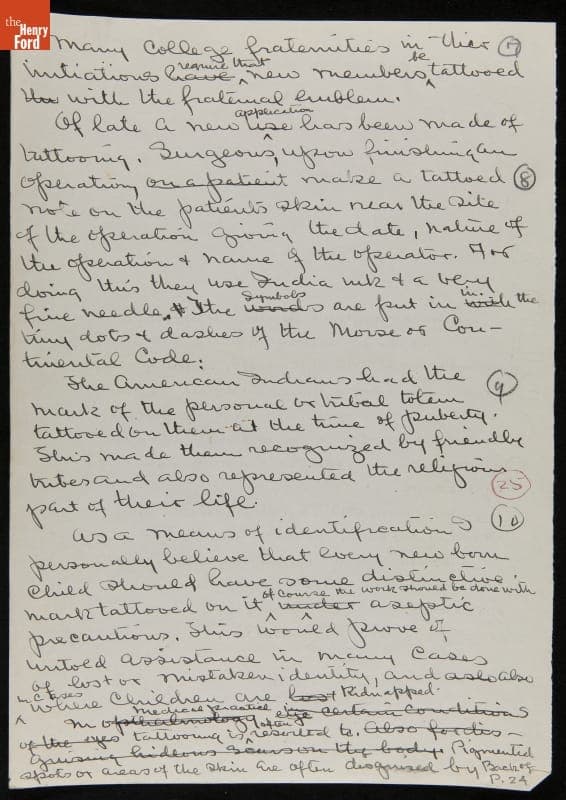 the
Henry
Ford
Many College fraternities in thier 7
initiations have require that new members be tattooed
the with the fraternal emblem.
Of late a new use application has been made of
tattooing. Surgeons, upon finishing an
operation, on a patient make a tattoed 8
note on the patients skin near the site
of the operation giving the date, nature of
the operation & name of the operator. For
doing this they use India ink & a very
fine needle. The words symbols are put in with in the
tiny dots & dashes of the Morse or Con-
tinental Code.
The American Indians had the 9
mark of the personal or tribal totem
tattooed on them at the time of puberty.
This made them recognized by friendly
tribes and also represented the religious
25
part of their life.
As a means of identification I 10
personally believe that every new born
child should have some distinctive
mark tattooed on it under of course the work should be done with aseptic
precautions. This would prove of
untoed assistance in many cases
of lost or mistaken identity, and also also
in cases where children are lost kidnapped.
In opthalmology medical practice eye certain conditions
of the eyes tattooing is often resorted to. Also for dis-
guising hideous scars on the body. Pigmented
spots or areas of the skin are often disguised by Back of
P. 24